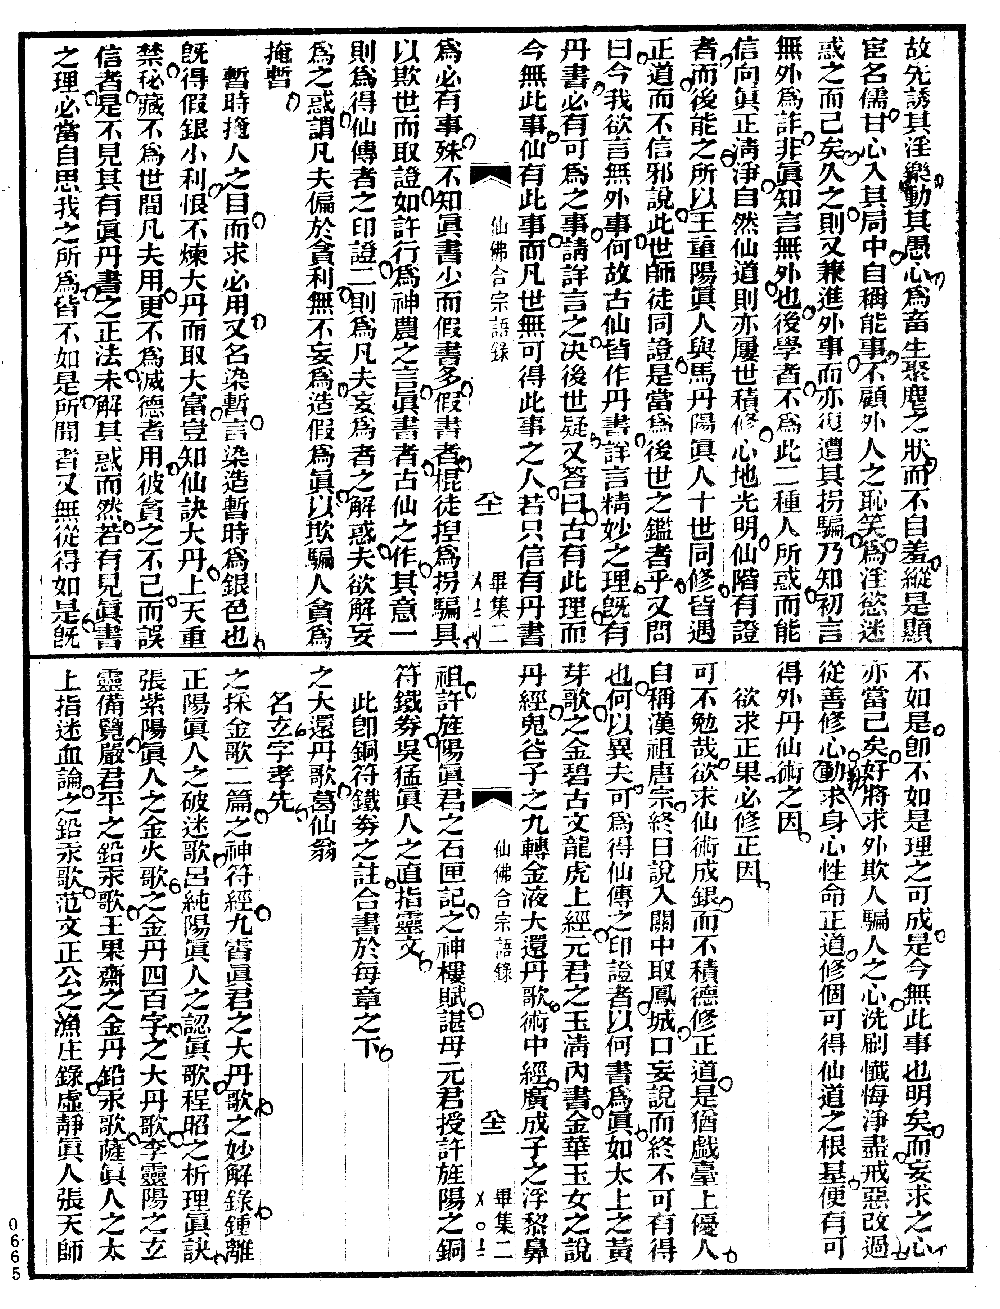 故先誘其淫樂動其愚心爲畜生聚麀之狀而不自羞縱是顯
宦名儒甘心入其局中自稱能事不顧外人之恥笑爲淫慾迷
惑之而已矣久之則又兼進外事而亦復遭其拐騙乃知初言
無外爲詐非眞知言無外也後學者不爲此二種人所惑而能
信向眞正淸淨自然仙道則亦屢世積修心地光明仙階有證
者而後能之所以王重陽眞人與馬丹陽眞人十世同修皆遇
正道而不信邪說此世師徒同證是當爲後世之鑑者乎又問
曰今我欲言無外事何故古仙皆作丹書詳言精妙之理旣有
丹書必有可爲之事請詳言之决後世疑又答曰古有此理而
今無此事仙有此事而凡世無可得此事之人若只信有丹書
仙佛合宗語錄
卆
畢集二
爲必有事殊不知眞書少而假書多假書者棍徒揑爲拐騙具
以欺世而取證如許行爲神農之言眞書者古仙之作其意一
則爲得仙傳者之印證二則爲凡夫妄爲者之解惑夫欲解妄
爲之惑謂凡夫偏於貪利無不妄爲造假爲眞以欺騙人貧爲
掩暫
暫時掩人之目而求必用又名染暫言染造暫時爲銀色也
旣得假銀小利恨不煉大丹而取大富豈知仙訣大丹上天重
禁秘藏不爲世間凡夫用更不爲滅德者用彼貪之不已而誤
信者是不見其有眞丹書之正法未解其惑而然若有見眞書
之理必當自思我之所爲皆不如是所聞者又無從得如是旣
不如是卽不如是理之可成是今無此事也明矣而妄求之心
亦當已矣好將求外欺人騙人之心洗刷懺悔淨盡戒惡改過
從善修心動求身心性命正道修個可得仙道之根基便有可
得外丹仙術之因
欲求正果必修正因
可不勉哉欲求仙術成銀而不積德修正道是猶戲臺上優人
自稱漢祖唐宗終日說入關中取鳳城口妄說而終不可有得
也何以異夫可爲得仙傳之印證者以何書爲眞如太上之黃
芽歌之金碧古文龍虎上經元君之玉淸內書金華玉女之說
丹經鬼谷子之九轉金液大還丹歌術中經廣成子之浮黎鼻
仙佛合宗語錄
畢集二
祖許旌陽眞君之石匣記之神樓賦諶母元君授許旌陽之銅
符鐵券吳猛眞人之直指靈文
此卽銅符鐵券之註合書於每章之下
之大還丹歌葛仙翁
名玄字孝先
之採金歌二篇之神符經九霄眞君之大丹歌之妙解錄鍾離
正陽眞人之破迷歌呂純陽眞人之認眞歌程昭之析理眞訣
張紫陽眞人之金火歌之金丹四百字之大丹歌李靈陽之玄
靈備覽嚴君平之鉛汞歌王果齋之金丹鉛汞歌薩眞人之太
上指迷血論之鉛汞歌范文正公之漁庄錄虛靜眞人張天師
0665